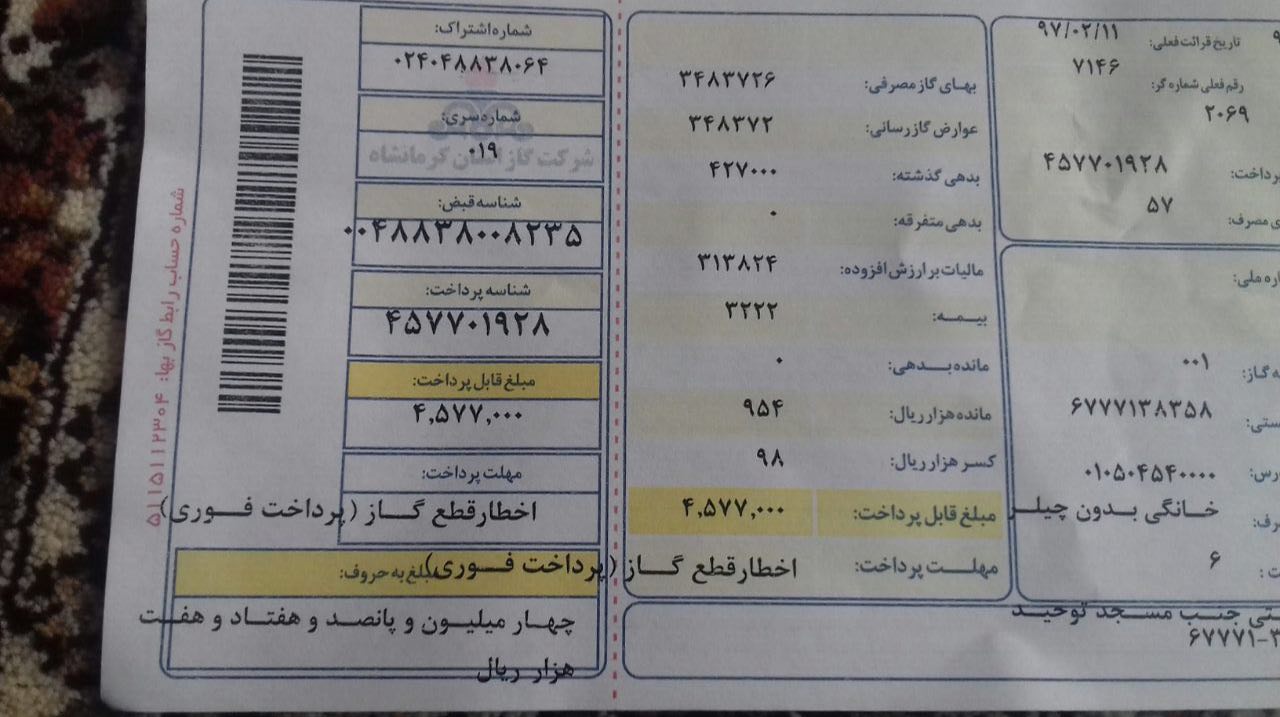 تاریخ قرائت فعلی: ۹۷/۰۲/۱۱
رقم فعلی شماره گر: ۷۱۴۶
۲۰۶۹
۴۵۷۷۰۱۹۲۸
۵۷
۰۰۱
۶۷۷۷۱۳۸۳۵۸
۰۱۰۵۰۴۵۴۰۰۰۰
خانگی بدون چیلر
۶
جنب مسجد توحید
بهای گاز مصرفی: ۳۴۸۳۷۲۶
عوارض گازرسانی: ۳۴۸۳۷۲
بدهی گذشته: ۴۲۷۰۰۰
بدهی متفرقه: ۰
مالیات بر ارزش افزوده: ۳۱۳۸۲۴
بیمه: ۳۲۲۲
مانده بدهی: ۰
مانده هزار ریال: ۹۵۴
کسر هزار ریال: ۹۸
مبلغ قابل پرداخت: ۴,۵۷۷,۰۰۰
مهلت پرداخت: اخطار قطع گاز (پرداخت فوری)
شماره اشتراک:
۰۲۴۰۴۸۸۳۸۰۶۴
شماره سری:
۰۱۹
شرکت گاز استان کرمانشاه
شناسه قبض:
۰۰۴۸۸۳۸۰۰۸۲۳۵
شناسه پرداخت:
۴۵۷۷۰۱۹۲۸
مبلغ قابل پرداخت:
۴,۵۷۷,۰۰۰
مهلت پرداخت:
اخطار قطع گاز (پرداخت فوری)
مبلغ به حروف:
چهار میلیون و پانصد و هفتاد و هفت
هزار ریال
شماره حساب رابط گاز بها: ۵۱۱۵۱۱۲۳۰۴